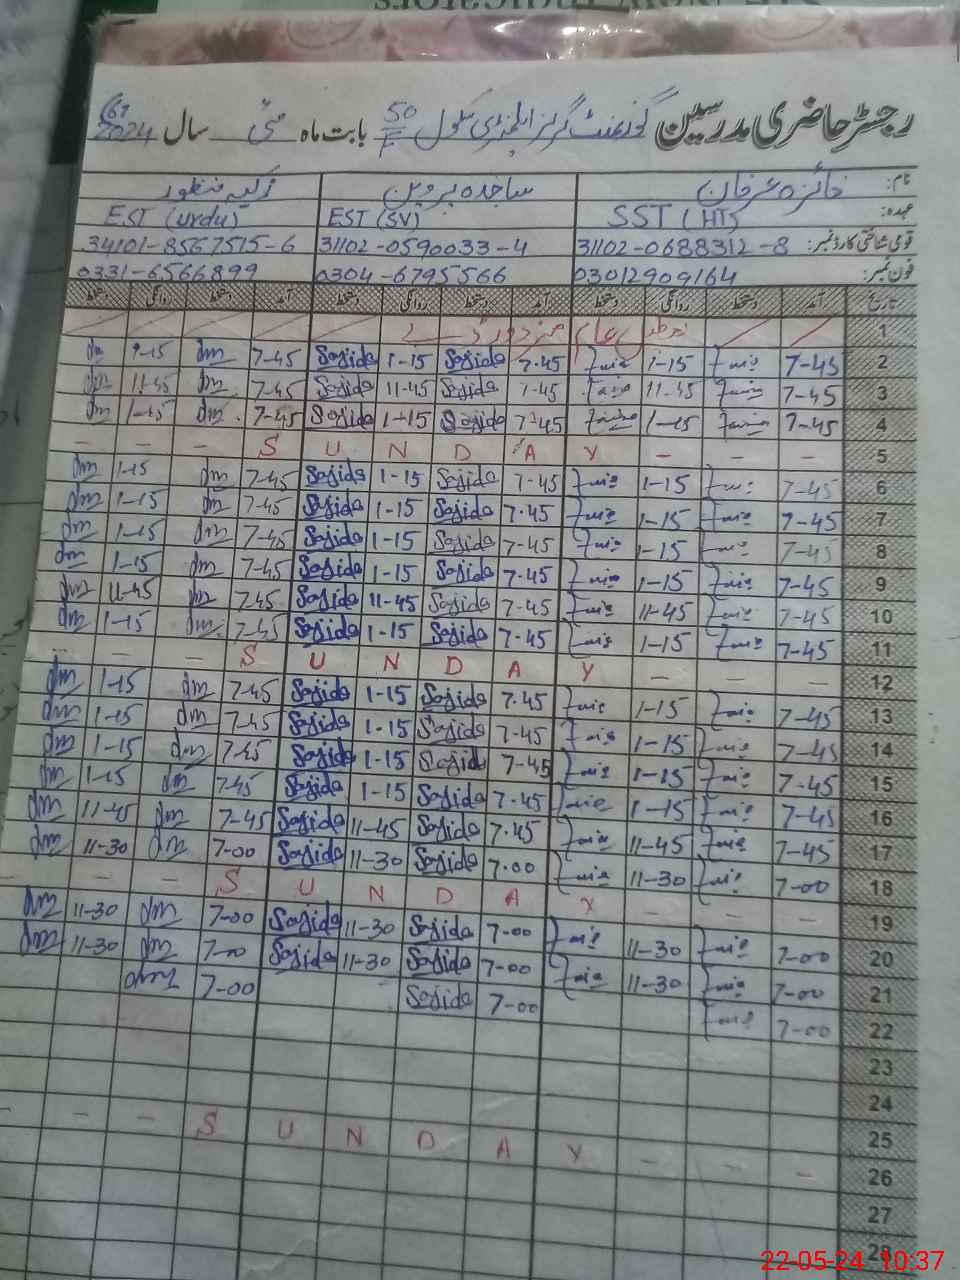 رجسٹر حاضری مدرسین گورنمنٹ گرلز ایلیمنٹری سکول 50/F بابت ماہ مئی سال 2024
نام: فائزہ عرفان ساجدہ پروین زکیہ منظور
عہدہ: SST (HT) EST (SV) EST (Urdu)
قومی شناختی کارڈ نمبر: 31102-0688312-8 31102-0590033-4 34101-8567515-6
فون نمبر: 03012909164 0304-6795566 0331-6566899
تاریخ آمد دستخط روانگی دستخط آمد دستخط روانگی دستخط آمد دستخط روانگی دستخط
1 تعطیل عام مزدور ڈے
2 7-45 1-15 7-45 Sajida 1-15 Sajida 7-45
3 7-45 11-45 7-45 Sajida 11-45 Sajida 7-45 11-45
4 7-45 1-15 7-45 Sajida 1-15 Sajida 7-45 1-15
5 - - - S U N D A Y - - -
6 7-45 1-15 7-45 Sajida 1-15 Sajida 7-45 1-15
7 7-45 1-15 7-45 Sajida 1-15 Sajida 7-45 1-15
8 7-45 1-15 7-45 Sajida 1-15 Sajida 7-45 1-15
9 7-45 1-15 7-45 Sajida 1-15 Sajida 7-45 1-15
10 7-45 11-45 7-45 Sajida 11-45 Sajida 7-45 11-45
11 7-45 1-15 7-45 Sajida 1-15 Sajida 7-45 1-15
12 - - - S U N D A Y - - -
13 7-45 1-15 7-45 Sajida 1-15 Sajida 7-45 1-15
14 7-45 1-15 7-45 Sajida 1-15 Sajida 7-45 1-15
15 7-45 1-15 7-45 Sajida 1-15 Sajida 7-45 1-15
16 7-45 1-15 7-45 Sajida 1-15 Sajida 7-45 1-15
17 7-45 11-45 7-45 Sajida 11-45 Sajida 7-45 11-45
18 7-00 11-30 7-00 Sajida 11-30 Sajida 7-00 11-30
19 - - - S U N D A Y - - -
20 7-00 11-30 7-00 Sajida 11-30 Sajida 7-00 11-30
21 7-00 11-30 7-00 Sajida 11-30 Sajida 7-00 11-30
22 7-00 7-00 Sajida 7-00
23
24
25
26 - - - S U N D A Y - - -
27
28
22-05-24 10:37